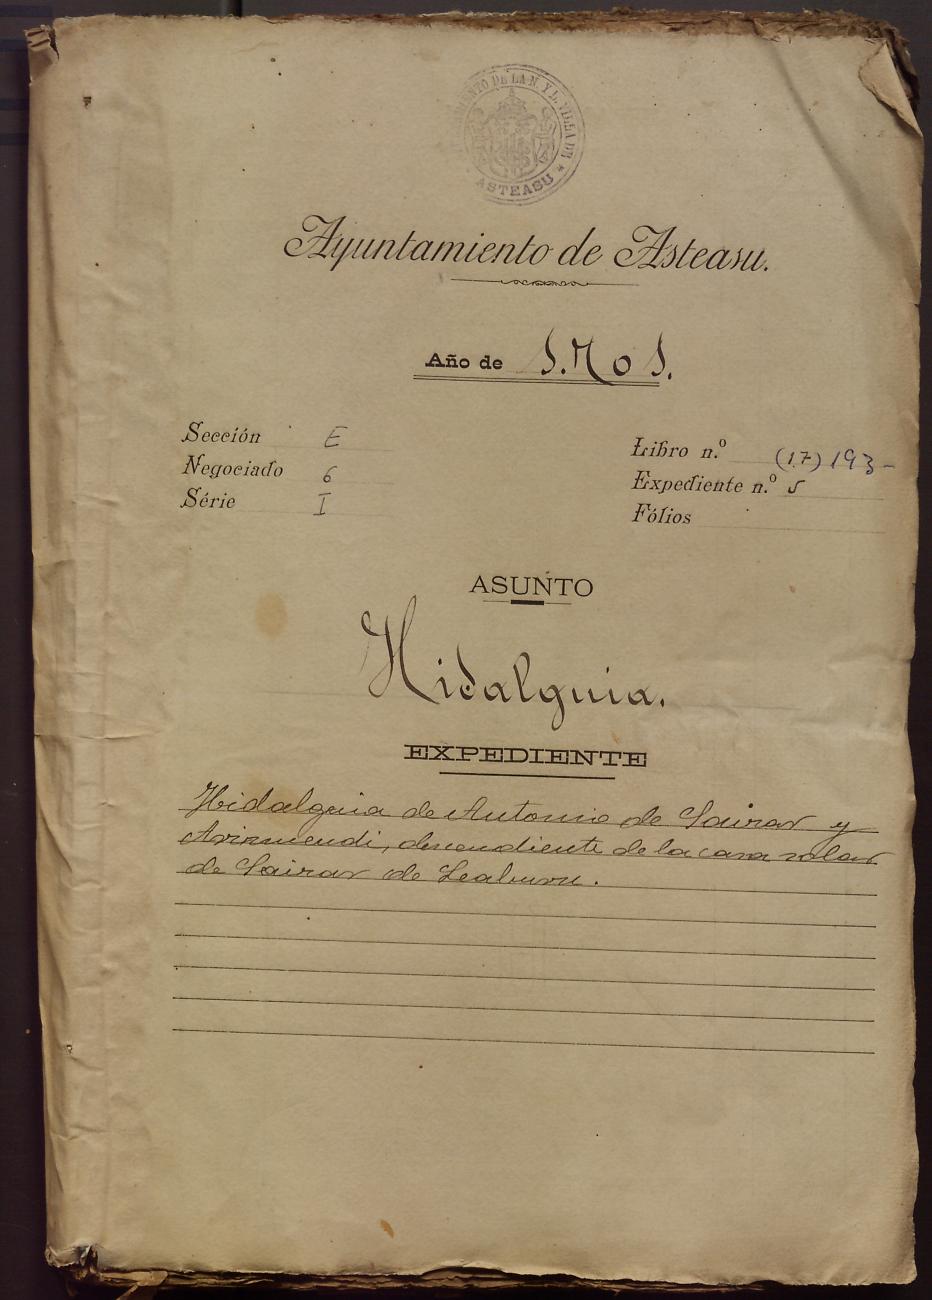 AYUNTAMIENTO DE LA N. Y L. VILLA DE
* ASTEASU *
Ayuntamiento de Asteasu.
Año de 1.701.
Sección E
Negociado 6
Série I
Libro n.º (17) 193-
Expediente n.º 5
Fólios
ASUNTO
Hidalguia.
EXPEDIENTE
Hidalguia de Antonio de Sairar y
Arizmendi, descendiente de la casa solar
de Sairar de Leaburu.